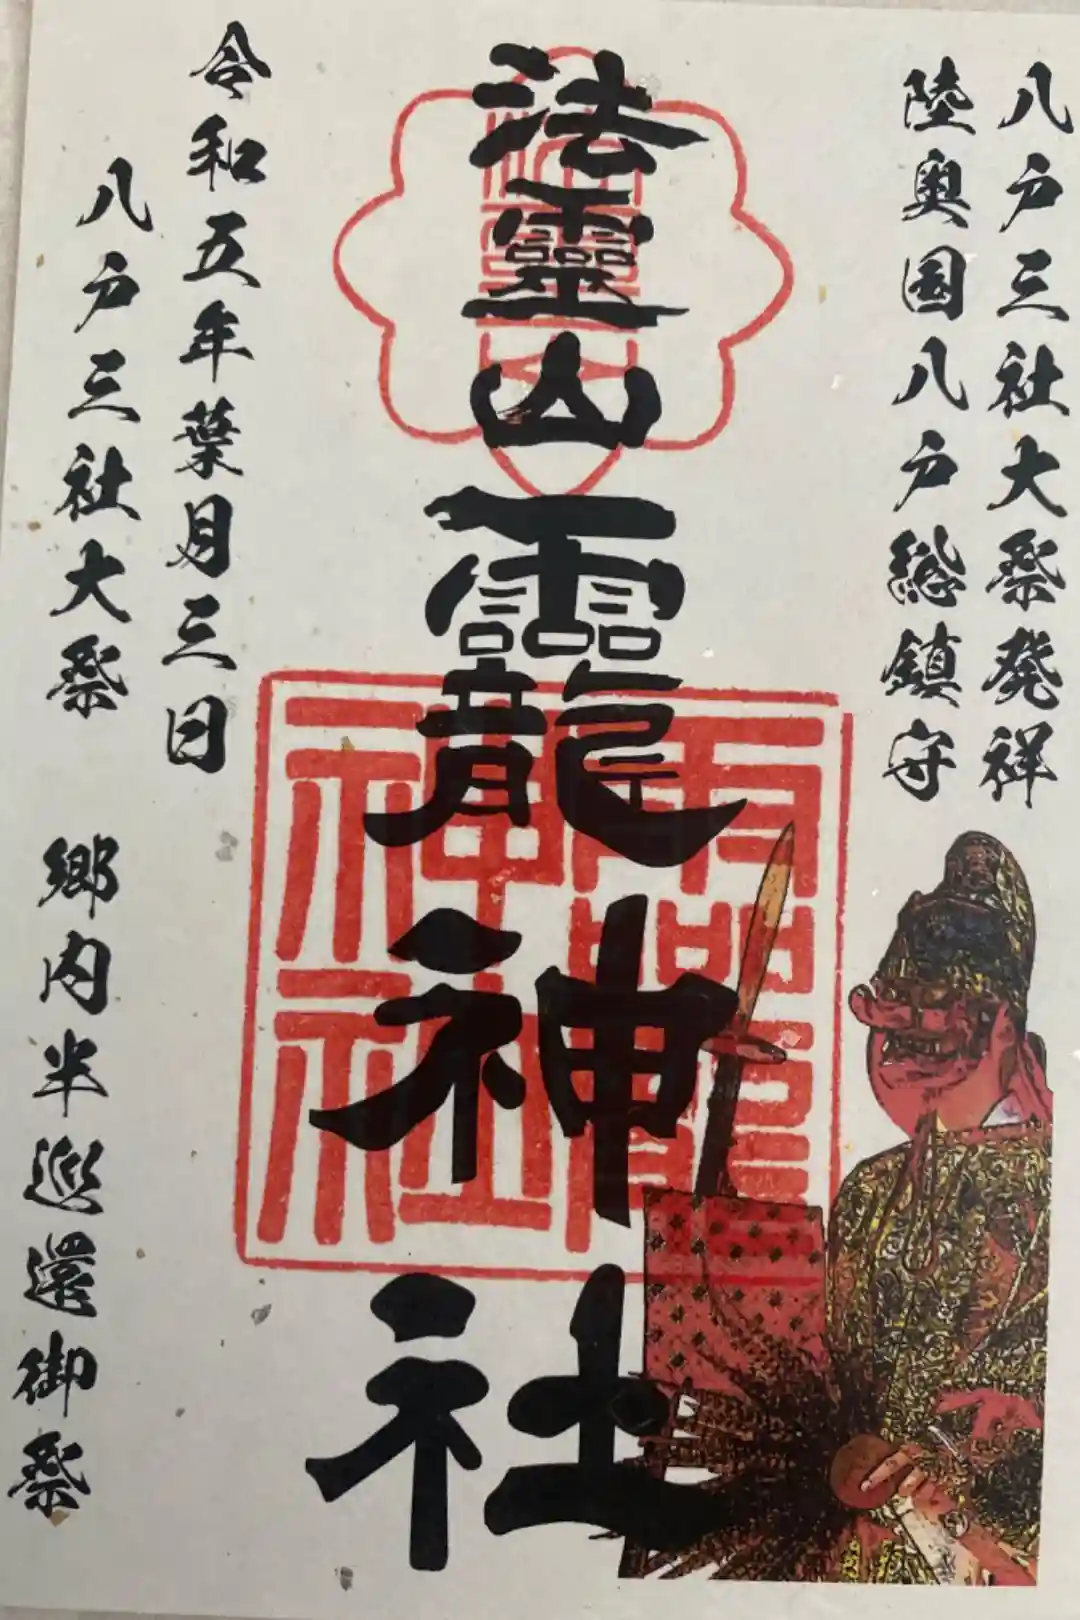 八戸三社大祭発祥
陸奥国八戸総鎮守
法霊山龗神社
法靈山
龗神社
令和五年葉月三日
八戸三社大祭 郷内半巡還御祭